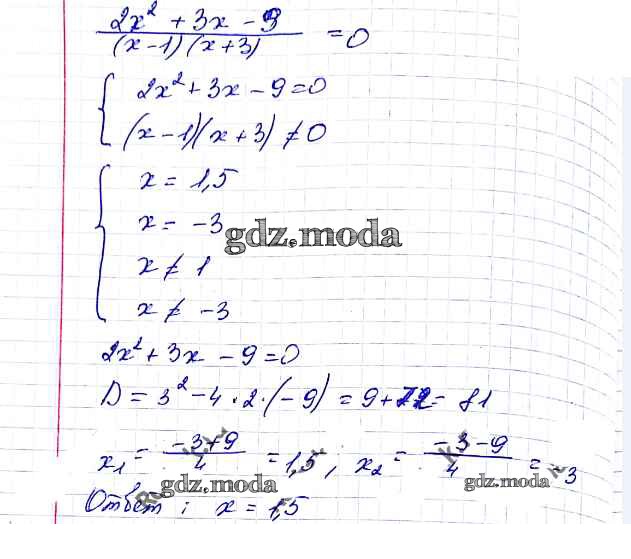 (2x² + 3x - 9) / ((x - 1)(x + 3)) = 0
2x² + 3x - 9 = 0
(x - 1)(x + 3) ≠ 0
x = 1,5
x = -3
gdz.moda
x ≠ 1
x ≠ -3
2x² + 3x - 9 = 0
D = 3² - 4 · 2 · (-9) = 9 + 72 = 81
x₁ = (-3+9) / 4 = 1,5 ; x₂ = (-3-9) / 4 = -3
gdz.moda gdz.moda
Ответ : x = 1,5